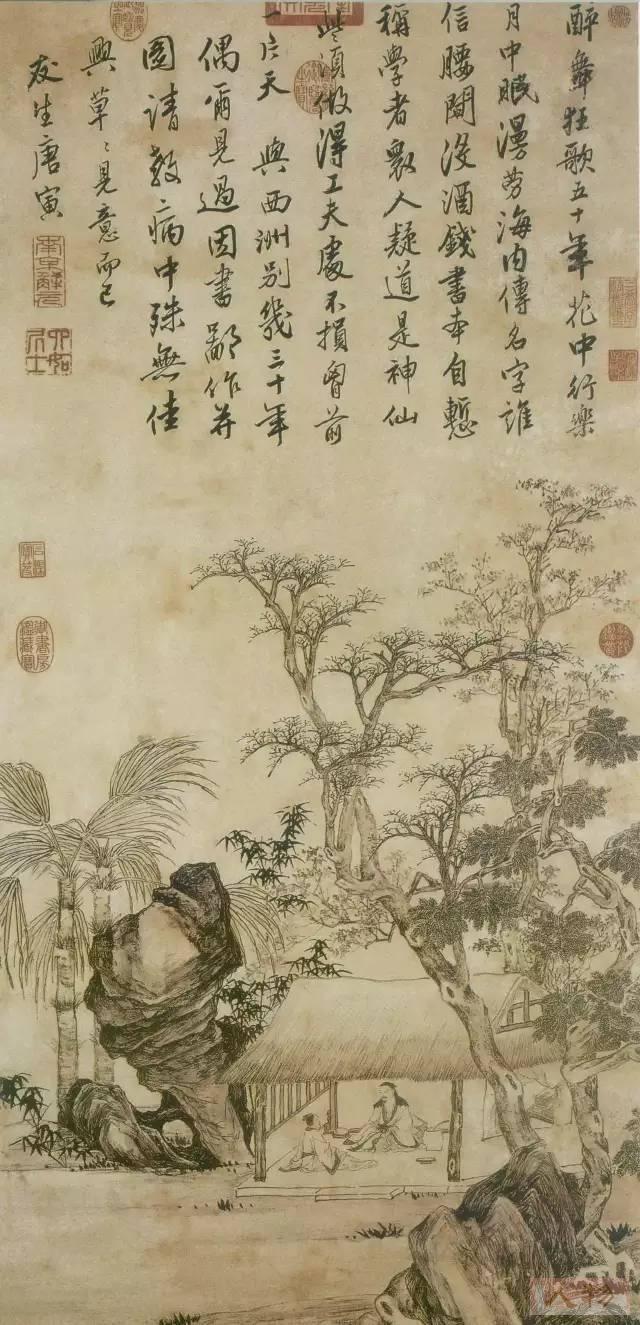 醉舞狂歌五十年花中行樂
月中眠漫勞海內傳名字誰
信腰間没酒錢書本自慙
稱學者衆人疑道是神仙
些須做得工夫處不損胷前
一片天 與西洲別幾三十年
偶爾見過因書鄙作并
圖請教病中殊無佳
興草〻見意而已
友生唐寅
南京解元
六如居士